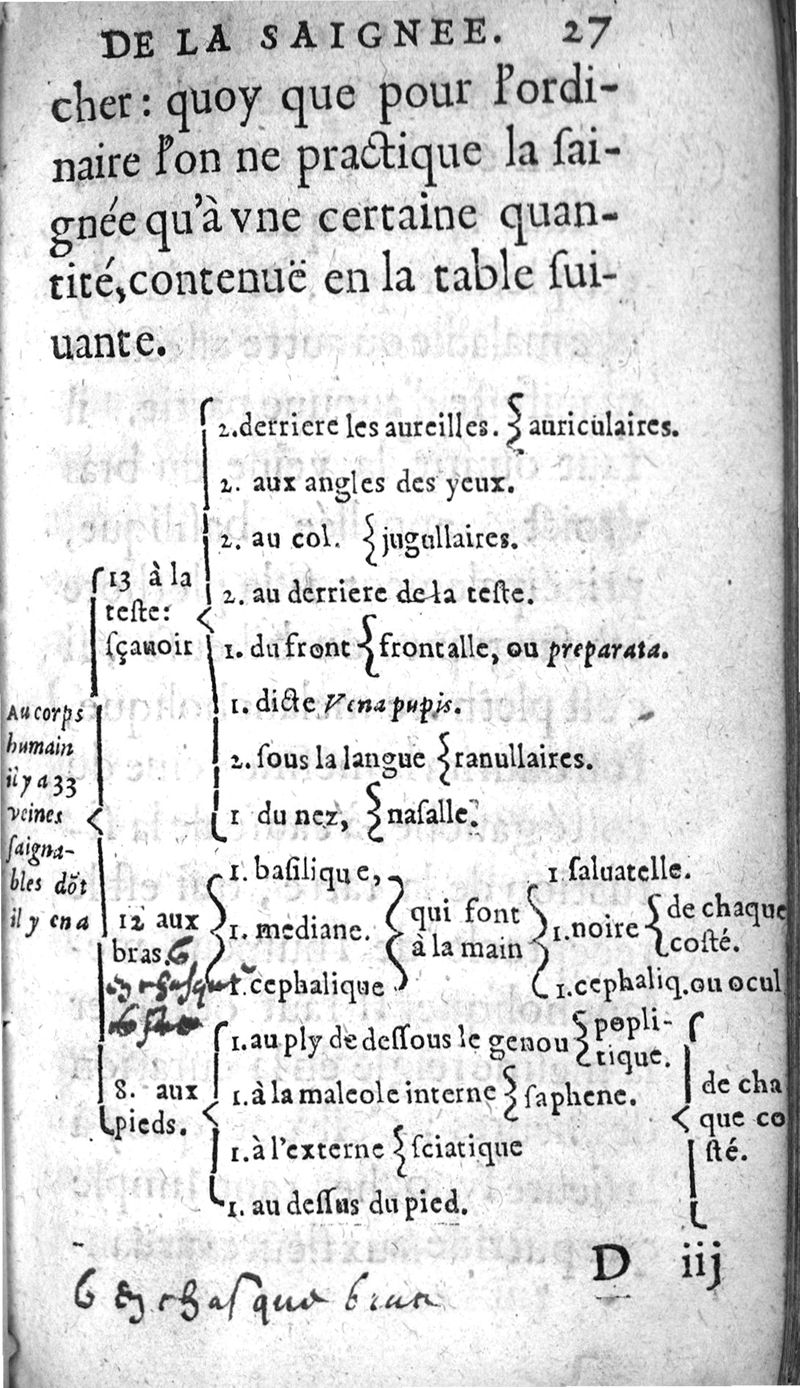 DE LA SAIGNEE. 27
cher: quoy que pour l'ordi-
naire l'on ne practique la ſai-
gnée qu'à vne certaine quan-
tité, contenuë en la table ſui-
uante.
Au corps
humain
il y a 33
veines
ſaigna-
bles dõt
il y en a
13 à la
teſte:
ſçauoir
2. derriere les aureilles. { auriculaires.
2. aux angles des yeux.
2. au col. { jugullaires.
2. au derriere de la teſte.
1. du front { frontalle, ou preparata.
1. dicte Vena pupis.
2. ſous la langue { ranullaires.
1 du nez, { naſalle.
12 aux
bras. 6
en chaſque
1. baſilique,
1. mediane.
1. cephalique
qui font
à la main
1. ſaluatelle.
1. noire { de chaque
coſté.
1. cephaliq. ou ocul
8. aux
pieds.
1. au ply de deſſous le genou { popli-
tique.
1. à la maleole interne { ſaphene.
1. à l'externe { ſciatique
1. au deſſus du pied.
de cha
que co
ſté.
D iij
6 en chaſque bras